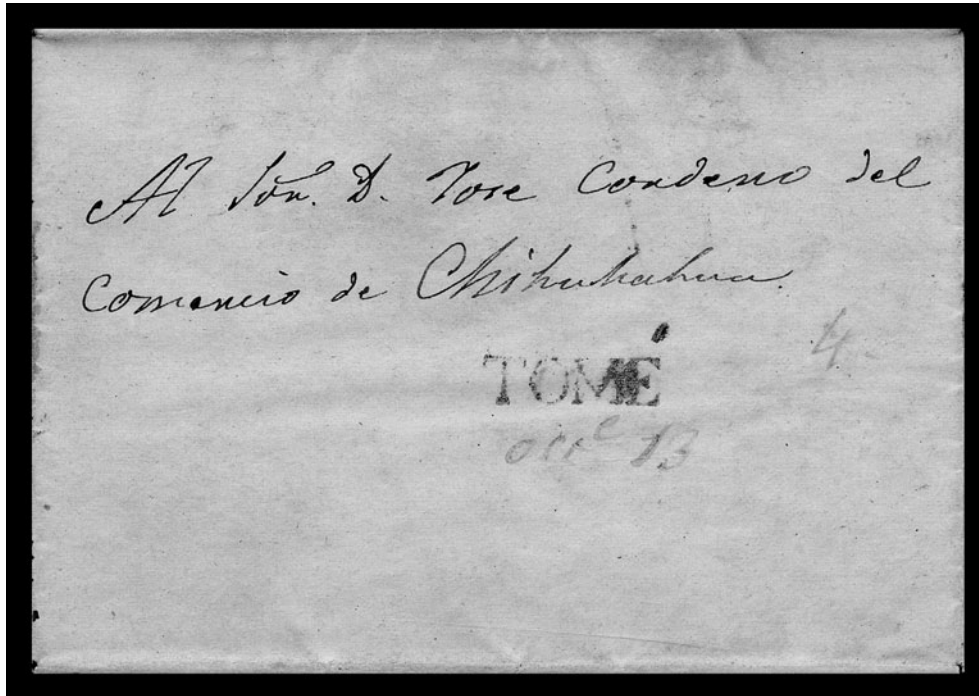 Al Sõr. D. Jose Cordero del
Comercio de Chihuhahua.
TOMÉ
4
13